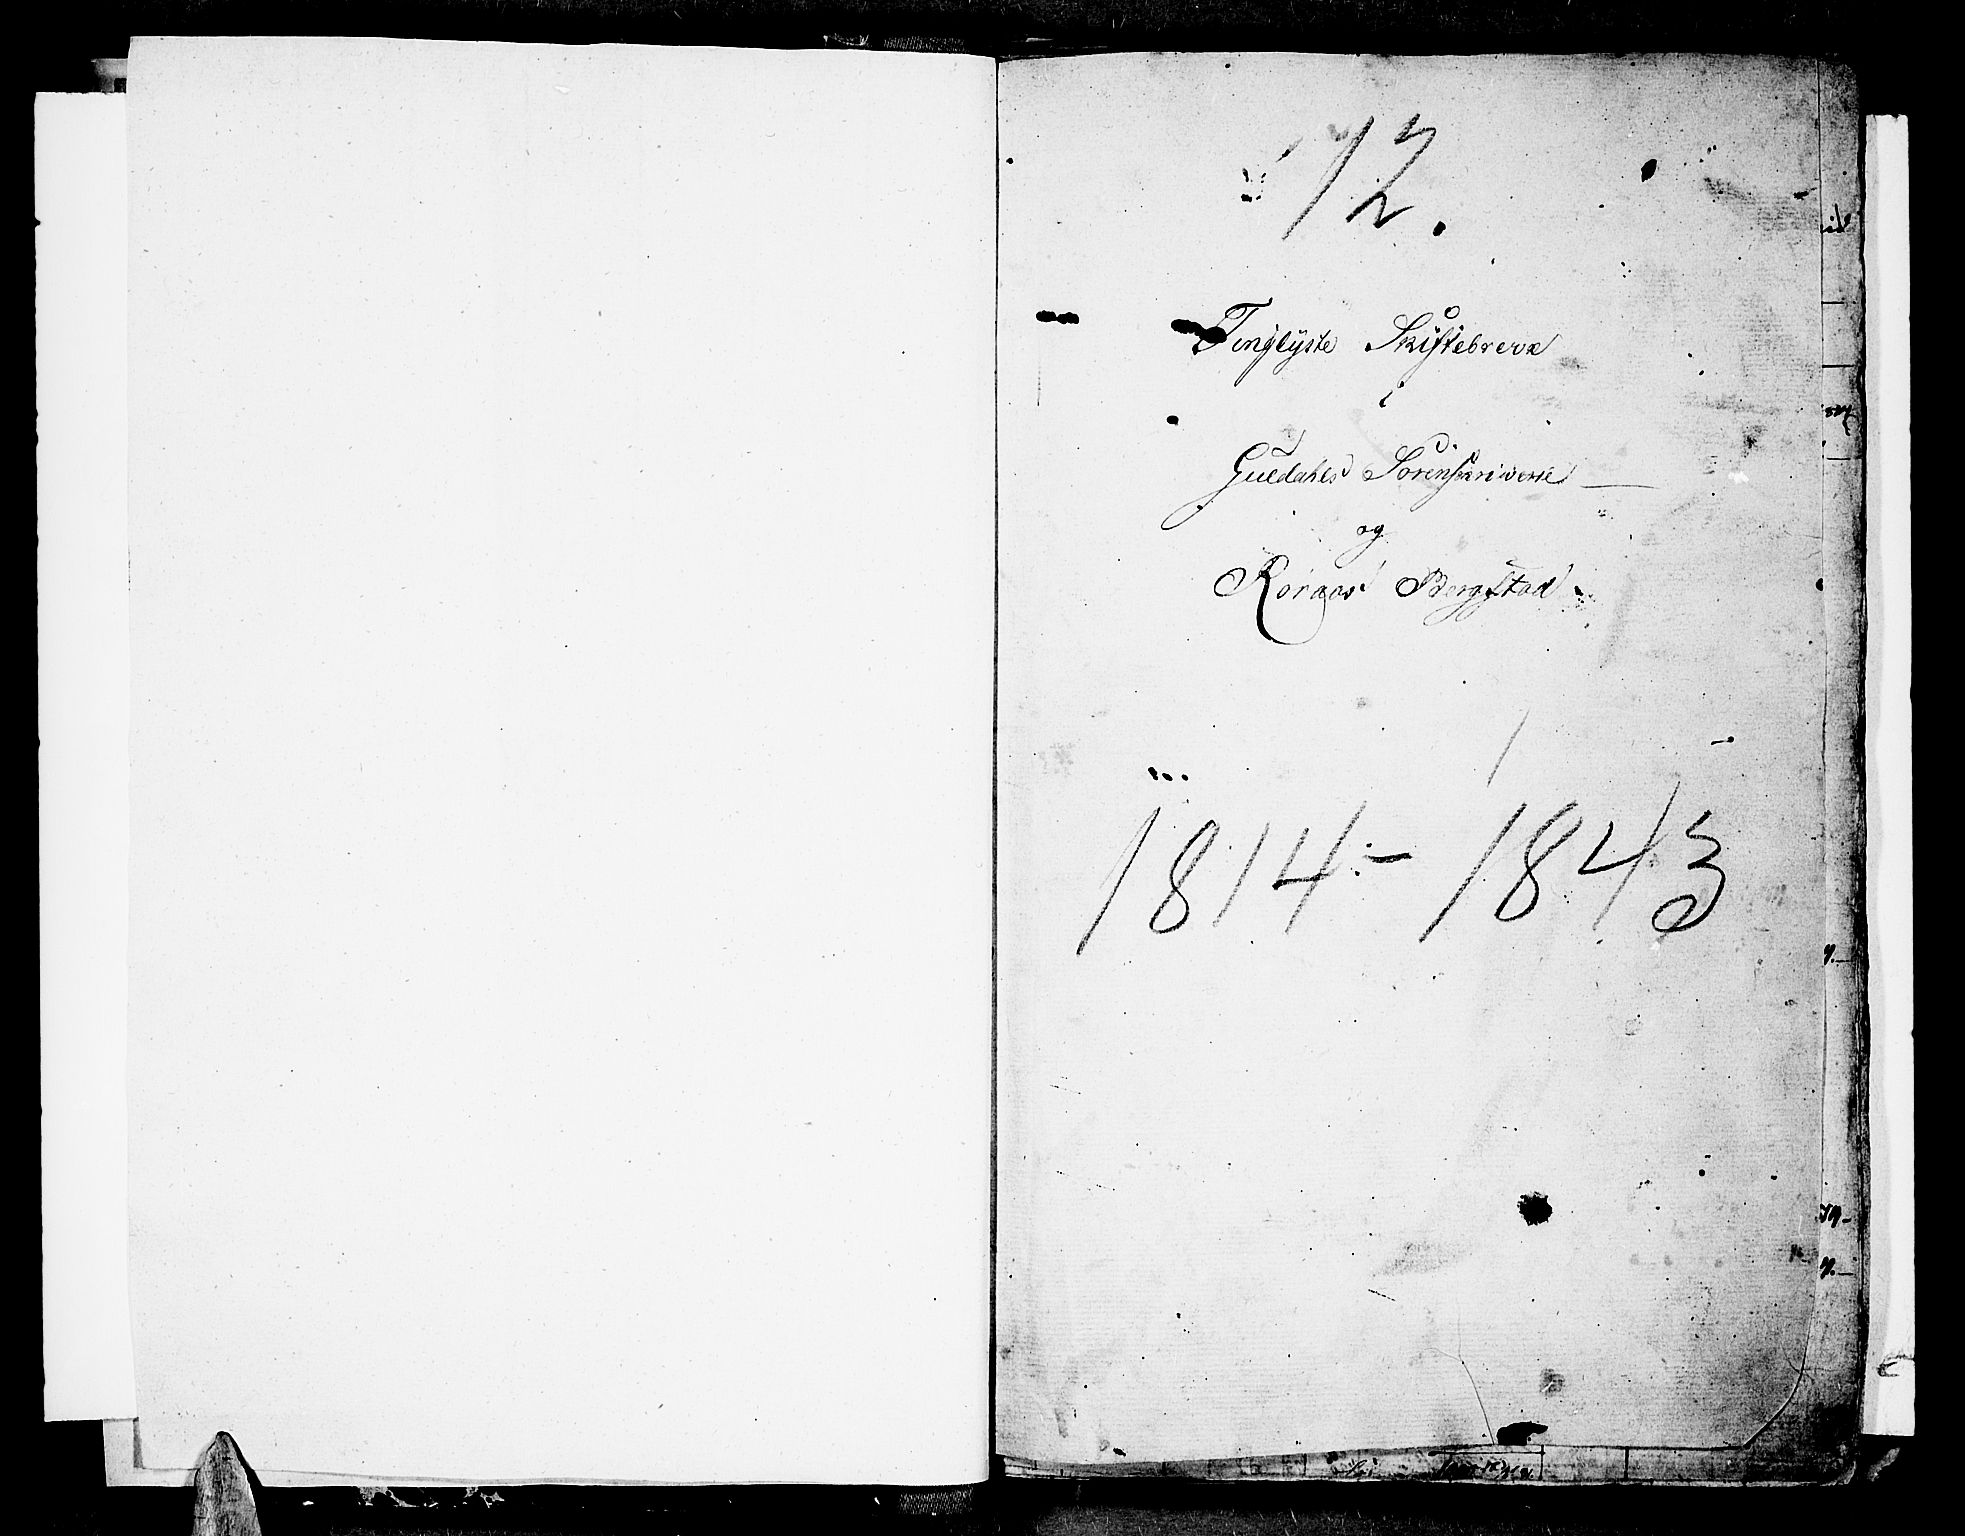 12.
Tinglÿste Skiftebreve
i
Guldahls Sorenskriverie
og
Røraas Bergstad
1814 - 1843